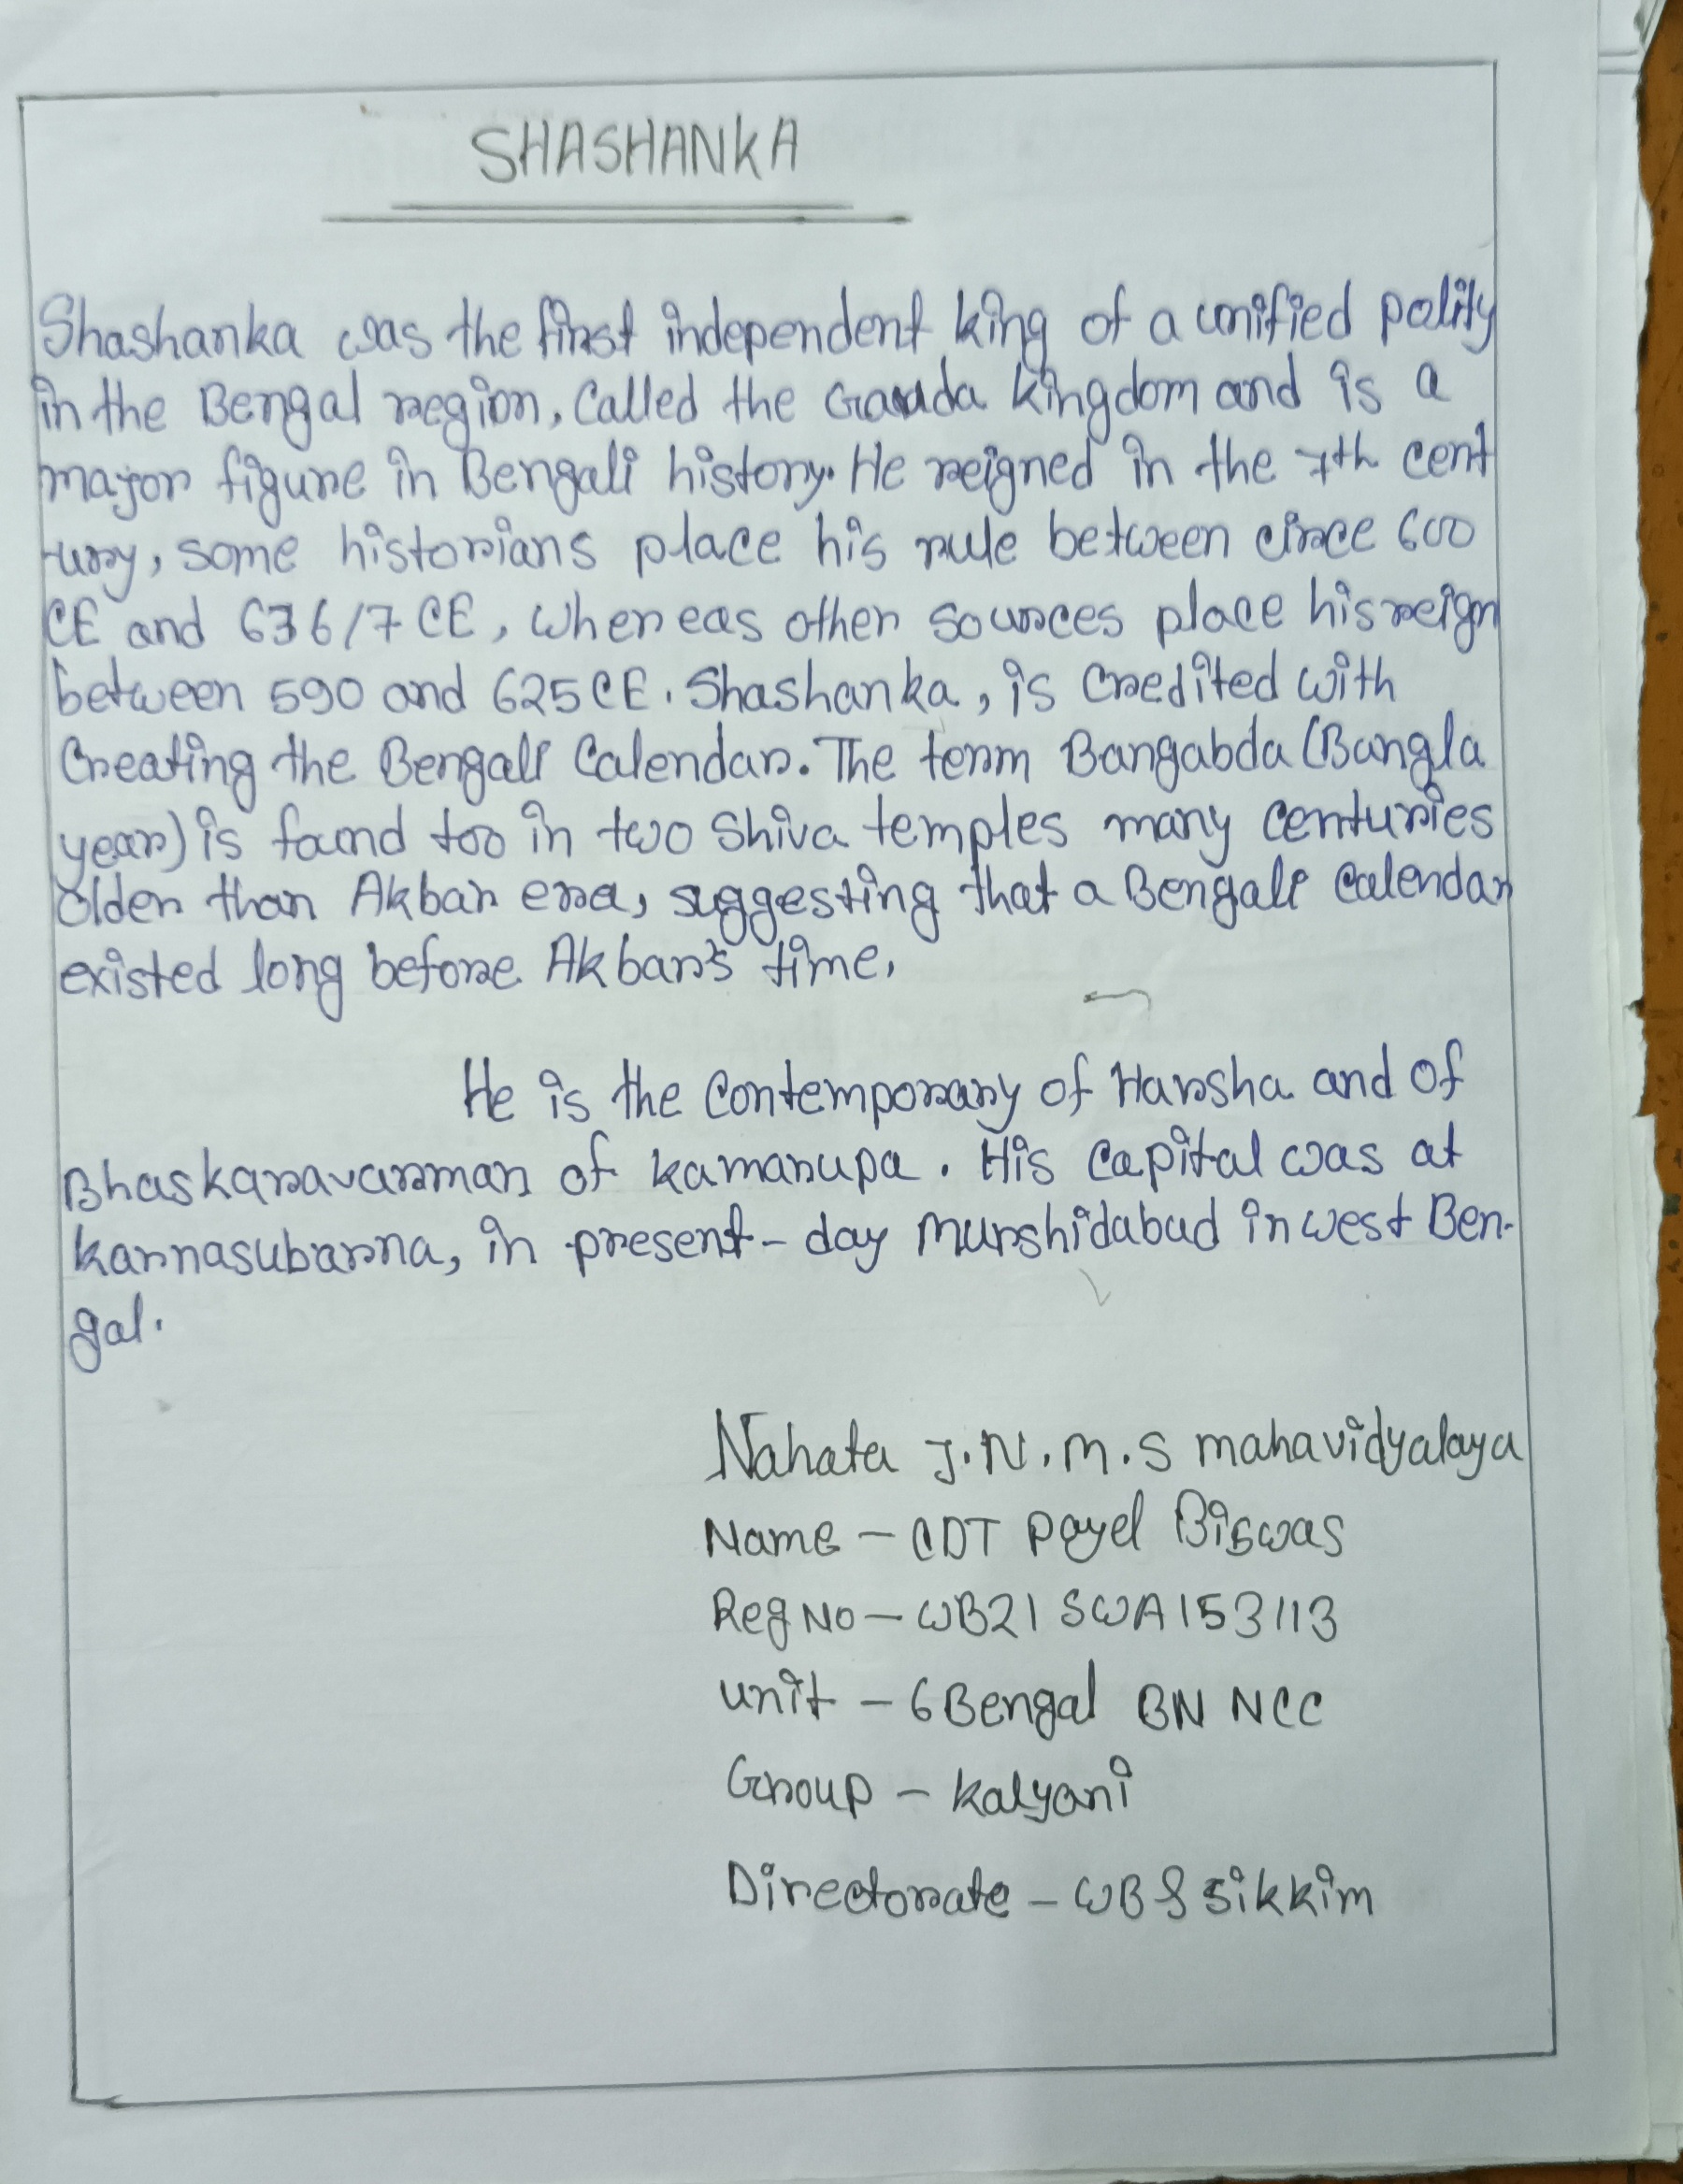 SHASHANKA
Shashanka was the first independent king of a unified polity
in the Bengal region, Called the Gauda kingdom and is a
major figure in Bengali history. He reigned in the 7th cent
tury, some historians place his rule between circe 600
CE and 636/7 CE, whereas other sources place his reign
between 590 and 625 CE. Shashanka, is credited with
Creating the Bengali Calendar. The term Bangabda (Bangla
year) is found too in two Shiva temples many centuries
older than Akbar era, suggesting that a Bengali calendar
existed long before Akbar's time.
He is the Contemporary of Harsha and of
Bhaskaravarman of kamarupa. His Capital was at
karnasubarna, in present-day Murshidabad in west Ben-
gal.
Nahata J.N.M.S mahavidyalaya
Name - CDT Payel Biswas
Reg No - WB21 SWA153113
unit - 6 Bengal BN NCC
Group - kalyani
Directorate - WB & Sikkim